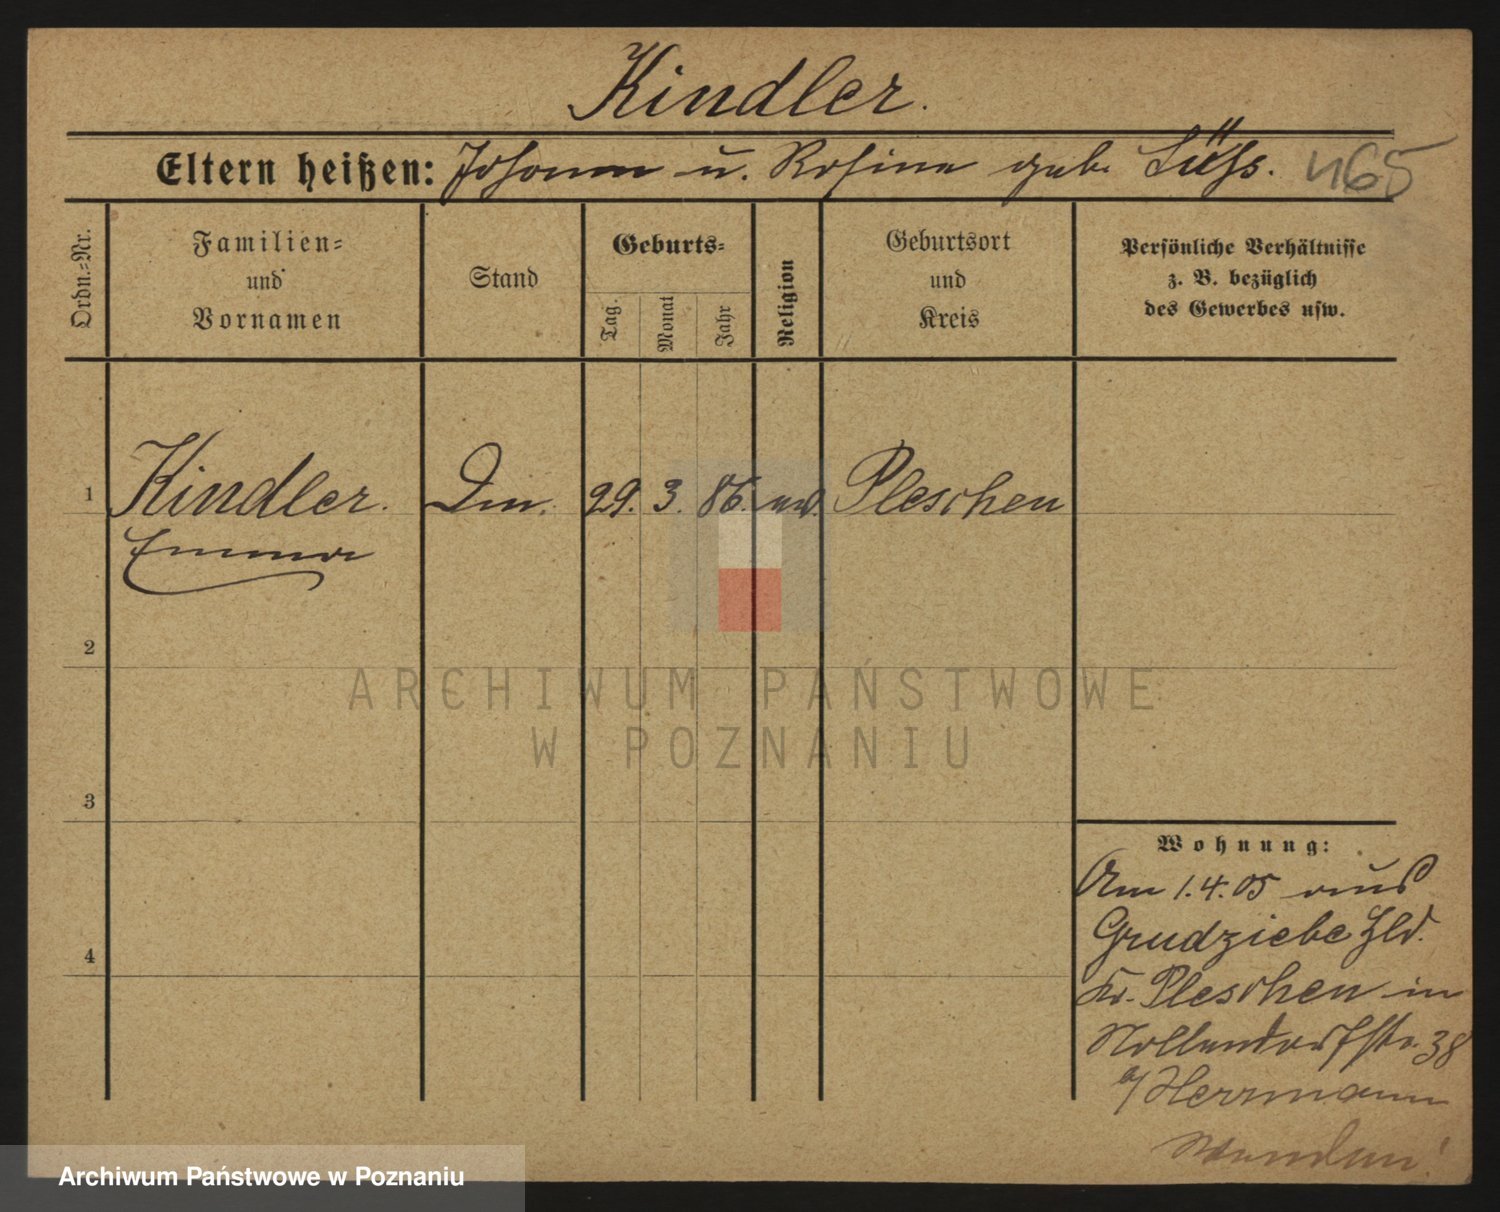 Kindler.
Eltern heißen: Johann u. Rosine geb. Süss. 465
Ordn.-Nr.
Familien-
und
Vornamen
Stand
Geburts-
Tag.
Monat
Jahr
Religion
Geburtsort
und
Kreis
Persönliche Verhältnisse
z. B. bezüglich
des Gewerbes usw.
1 Kindler. 29. 3. 86. Pleschen
Emma
2
3
4
Wohnung:
Am 1.4.05 aus
Grudziebe Hld.
Kr. Pleschen in
Nollendorfstr. 38
b/ Herrmann
ARCHIWUM PAŃSTWOWE
W POZNANIU
Archiwum Państwowe w Poznaniu